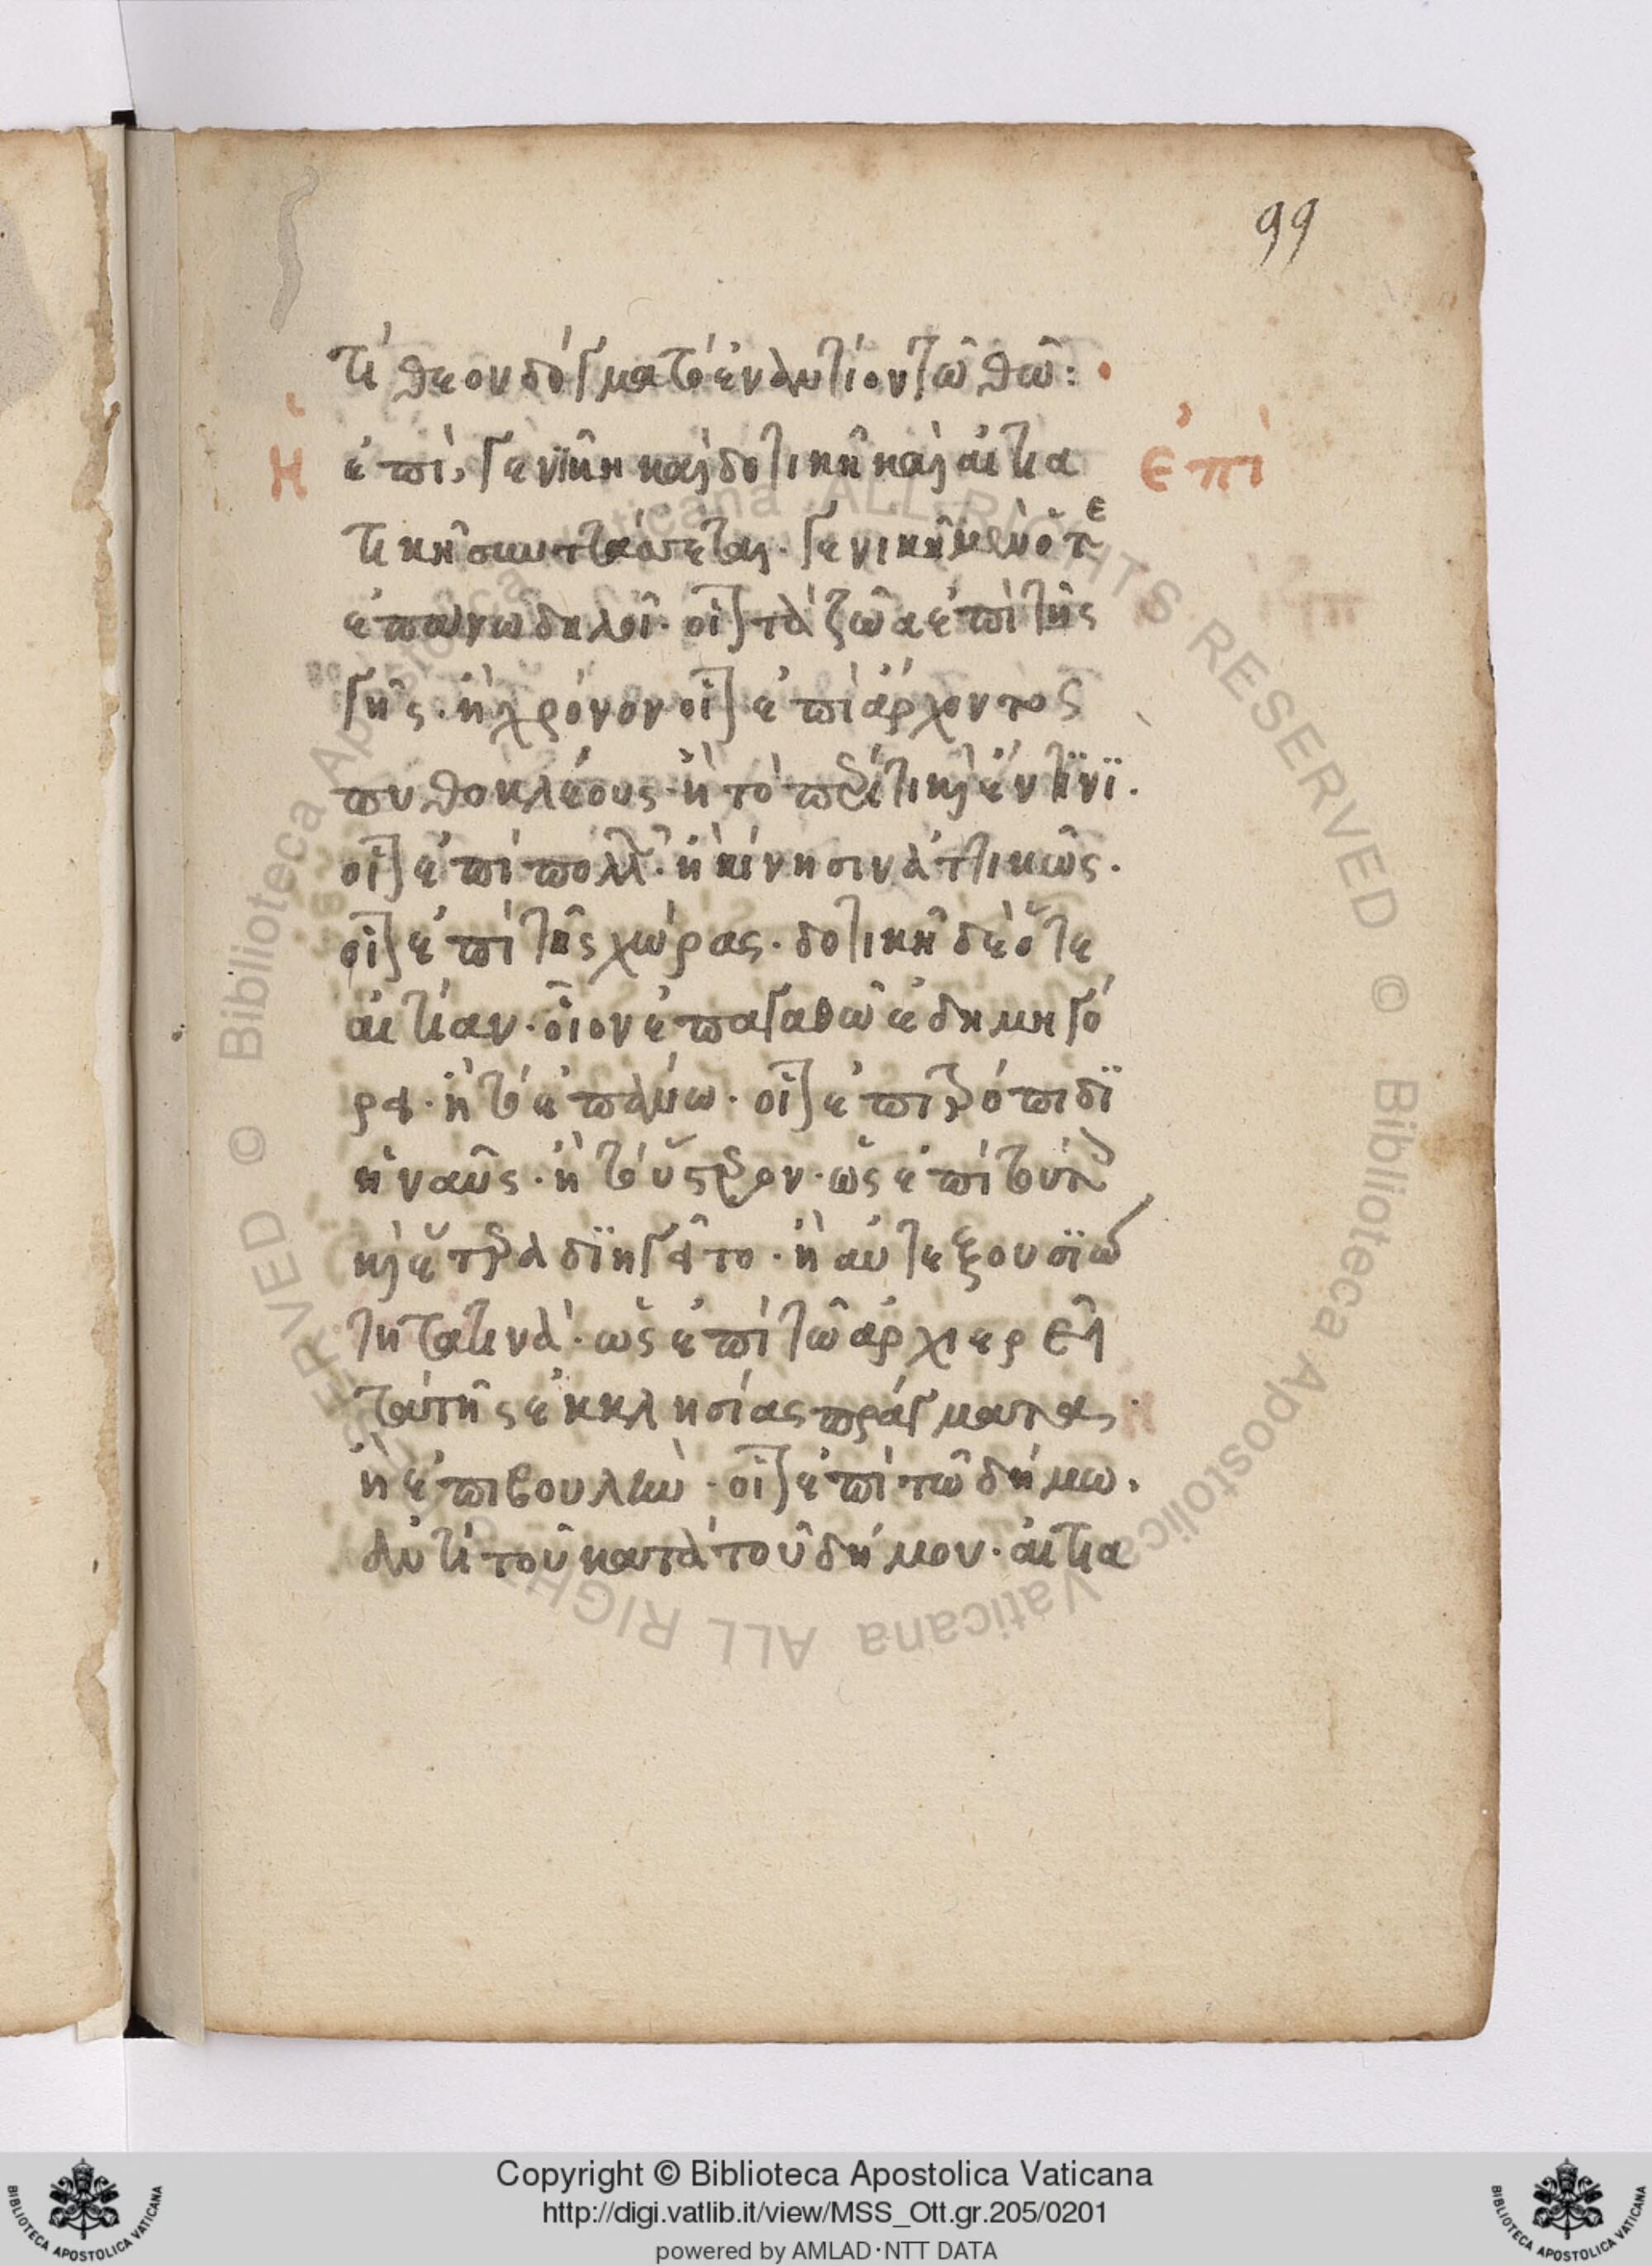 99
τίθεον δόγμα τὸ ἐναντίον τῶ θῶ:
ἡ ἐπὶ, γενϊκῆ καὶ δοτικῆ καὶ αἰτια ἐπὶ
τικῆ συντάσσεται. γενικῆ μὲν ὅτε
ἐπάνω δηλοῖ. οἷον τὰ ζῶα ἐπὶ τῆς
γῆς. ἢ χρόνον οἷον ἐπὶ ἄρχοντος
πυθοκλέους. ἢ τὸ
οἷον ἐπὶ πολλ. ἢ κίνησιν ἀττικῶς.
οἷον ἐπὶ τῆς χώρας. δοτικῆ δὲ ὅτε
αἰτίαν. οἷον ἐπ αγαθῶ ἐδημηγό
ρει. ἢ τὸ ἐπάνω. οἷον ἐπὶ τρόπιδϊ
ἡ ναῦς. ἢ τὸ ὕστερον. ὡς ἐπὶ
καὶ ἕτερα δϊηγεῖτο. ἢ αὐτεξουσϊ
τητα τινὰ. ὡς ἐπὶ τῶ ἀρχιερεῖ
τὰ τῆς ἐκκλησίας πράγματα,
ἢ ἐπιβουλὴν. οἷον ἐπὶ τῶ δήμω.
ἀντὶ τοῦ κατὰ τοῦ δήμου. αἰτια
Copyright © Biblioteca Apostolica Vaticana
http://digi.vatlib.it/view/MSS_Ott.gr.205/0201
powered by AMLAD·NTT DATA
BIBLIOTECA APOSTOLICA VATICANA
BIBLIOTECA APOSTOLICA VATICANA
© Biblioteca Apostolica Vaticana ALL RIGHTS RESERVED © Biblioteca Apostolica Vaticana ALL RIGHTS RESERVED